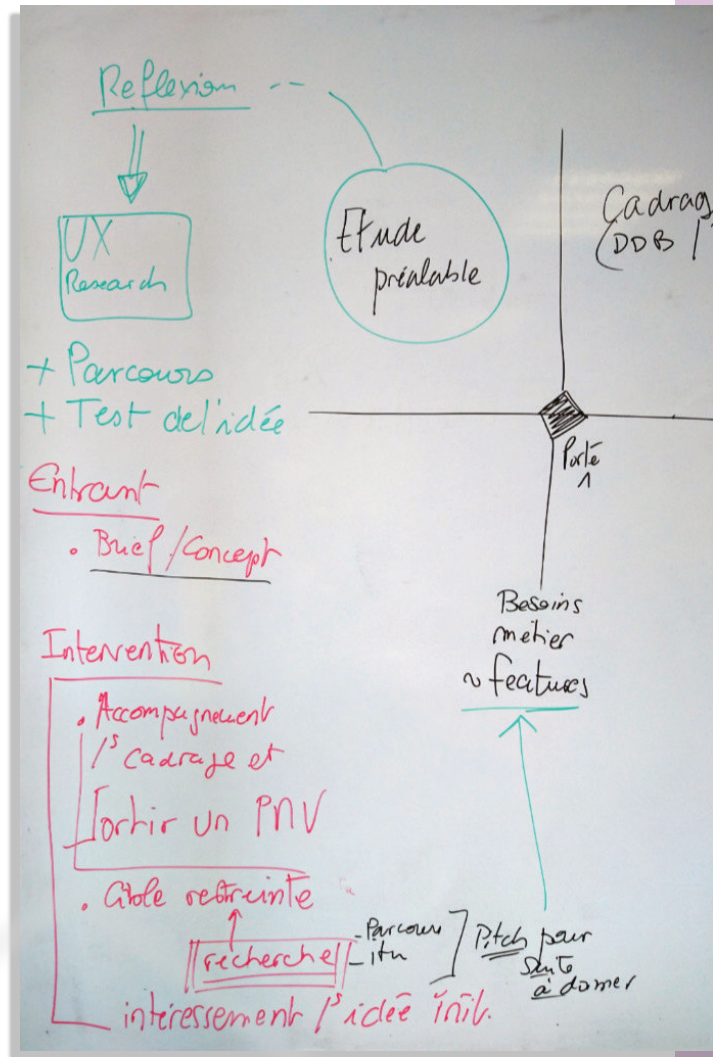 Reflexion
UX
Research
+ Parcours
+ Test de l'idée
Etude
préalable
Cadrag
(DDB /
Porte
1
Entrant
. Brief/Concept
Besoins
métier
~ features
Intervention
. Accompagnement
/s cadrage et
Sortir un PMV
. Cible restreinte
recherche
- Parcours
- itw
Pitch pour
suite
à donner
intéressement /s idée init.